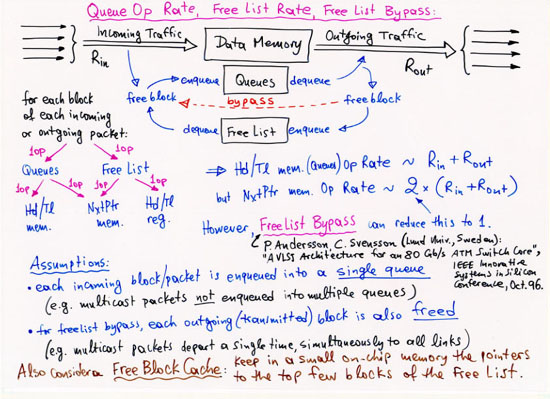 Queue Op Rate, Free List Rate, Free List Bypass:
Incoming Traffic
Outgoing Traffic
Data Memory
Rin
Rout
enqueue
Queues
dequeue
free block
bypass
free block
dequeue
Free List
enqueue
for each block
of each incoming
or outgoing packet:
1op
1op
Queues
Free List
1op
1op
1op
1op
Hd/Tl
mem.
NxtPtr
mem.
Hd/Tl
reg.
⇒ Hd/Tl mem. (Queues) Op Rate ~ Rin + Rout
but NxtPtr mem. Op Rate ~ 2 × (Rin + Rout)
However, Free List Bypass can reduce this to 1.
P. Andersson, C. Svensson (Lund Univ., Sweden):
"A VLSI Architecture for an 80 Gb/s ATM Switch Core",
IEEE Innovative
Systems in Silicon
Conference, Oct. 96.
Assumptions:
• each incoming block/packet is enqueued into a single queue
(e.g. multicast packets not enqueued into multiple queues)
• for freelist bypass, each outgoing (transmitted) block is also freed
(e.g. multicast packets depart a single time, simultaneously to all links)
Also consider a Free Block Cache: keep in a small on-chip memory the pointers
to the top few blocks of the Free List.